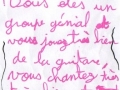 Vous êtes un
groupe génial
vous jouez très bien
de la guitare,
vous chantez très